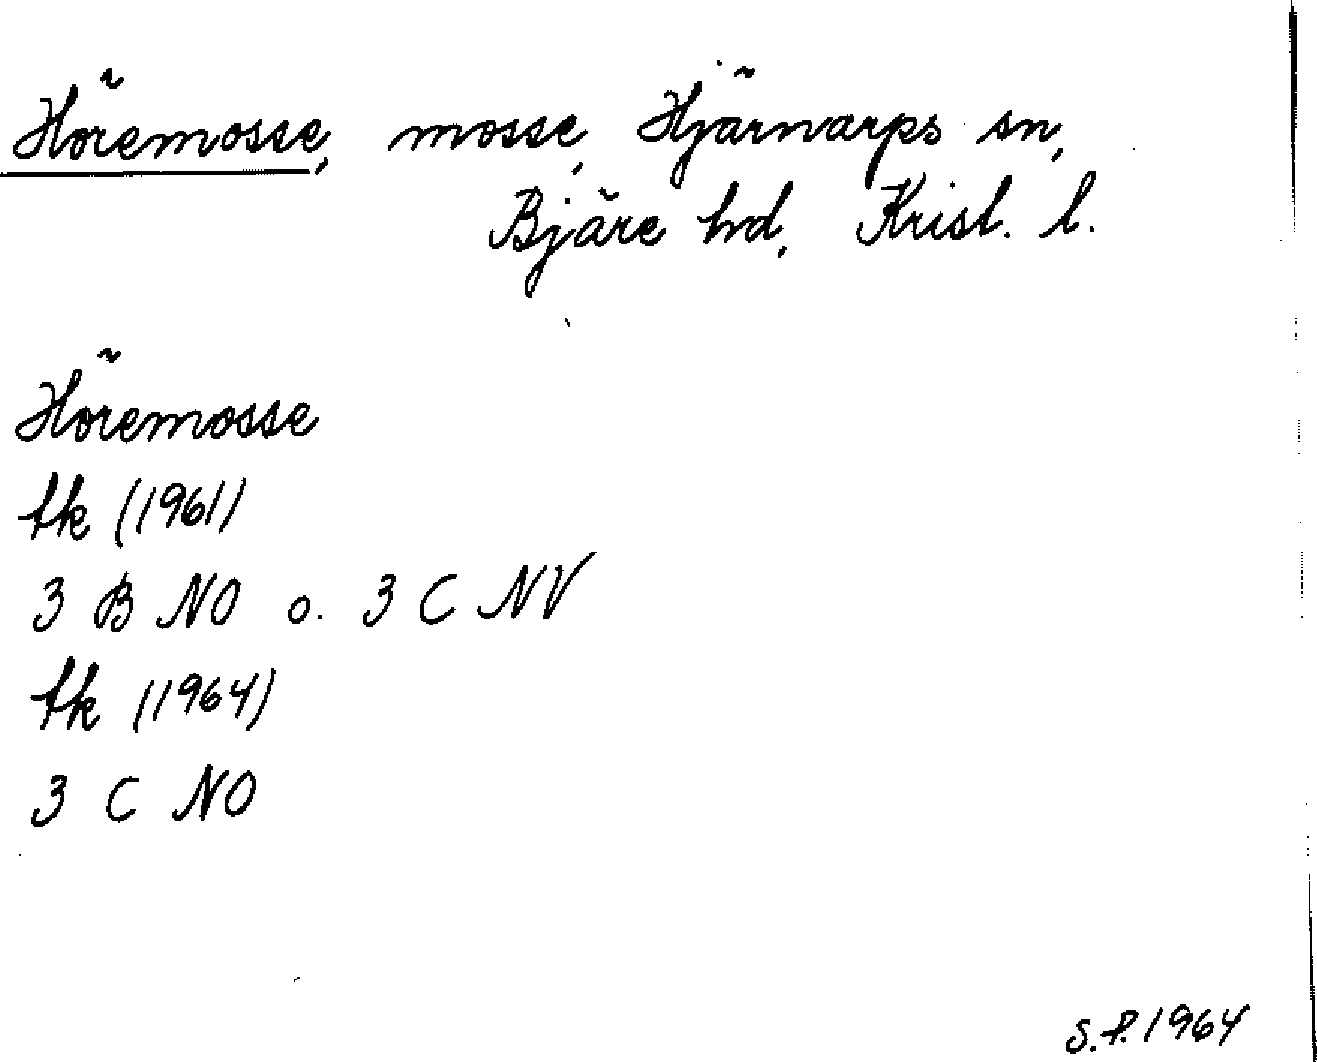 Höremosse, mosse, Hjärnarps sn,
Bjäre hd, Krist. l.
Höremosse
tk (1961)
3 B NO o. 3 C NV
tk (1964)
3 C NO
S.P. 1964